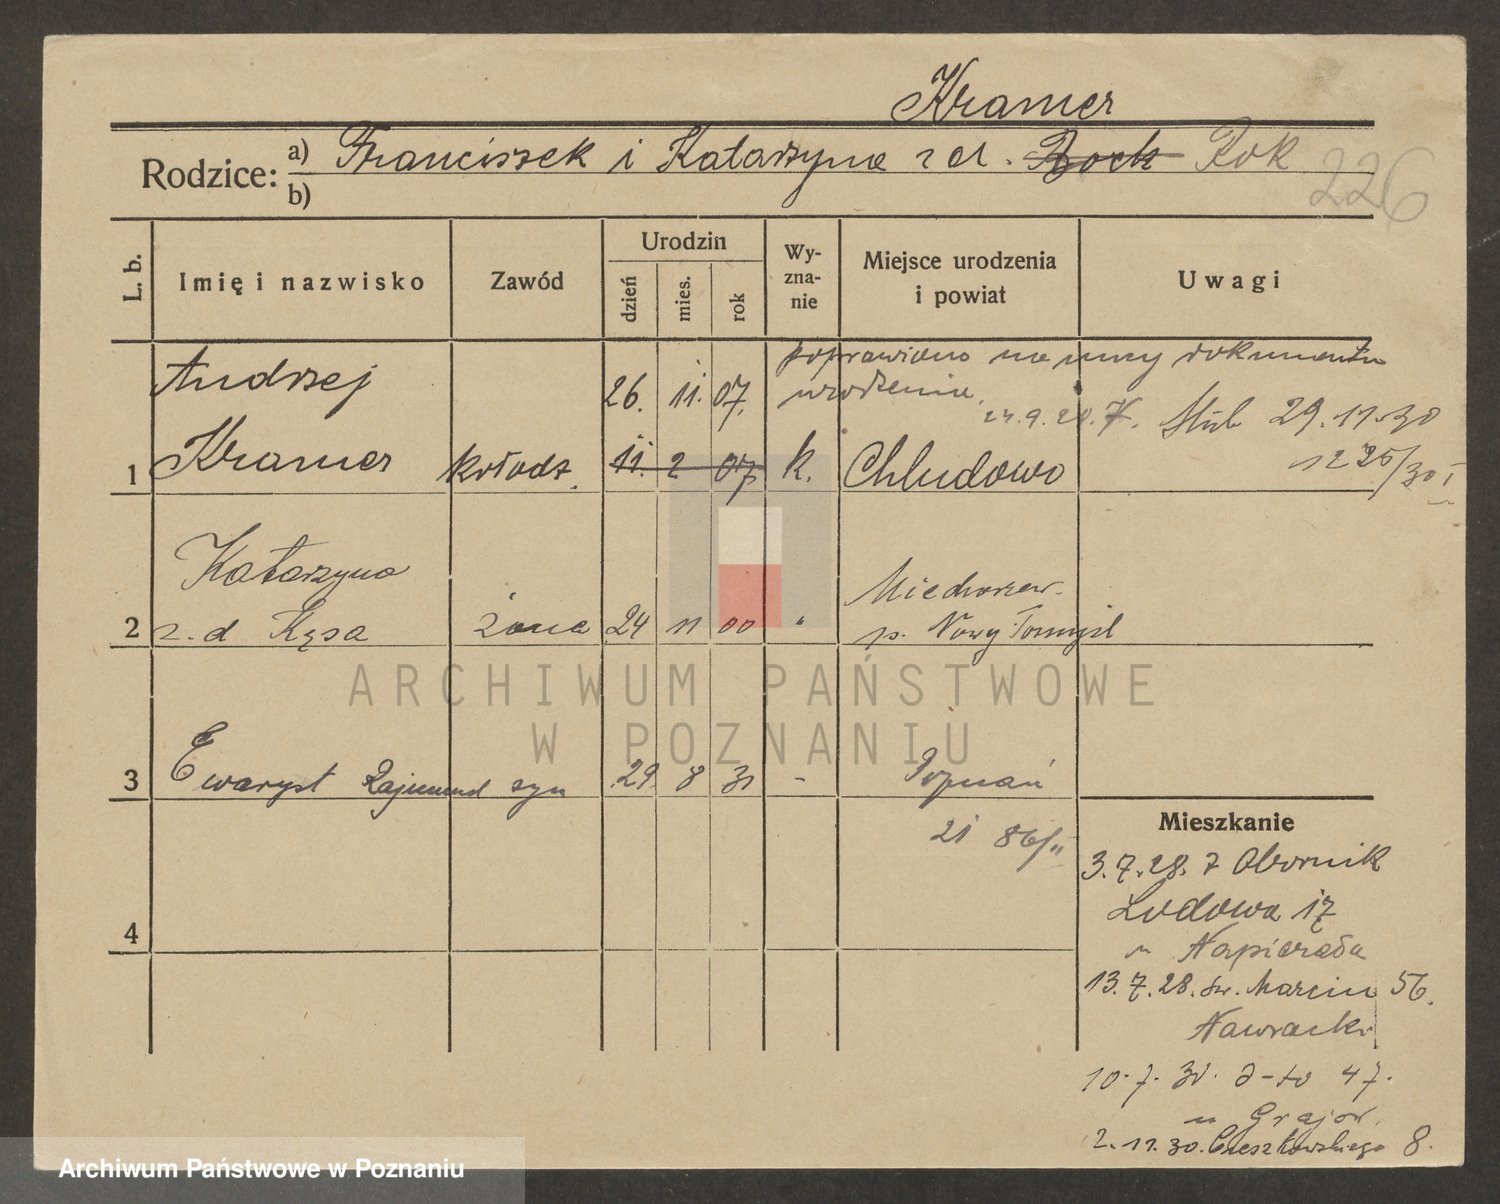 Kramer
Rodzice: a) Franciszek i Katarzyna z d. Bock Rok
b)
226
L. b.
Imię i nazwisko
Zawód
Urodzin
dzień
mies.
rok
Wy-
zna-
nie
Miejsce urodzenia
i powiat
Uwagi
poprawiono na mocy dokumentu
urodzenia.
Andrzej
26. 11. 07.
24.9.28.
Ślub 29.11.30
1225/30 I
1 Kramer kołodz. 11. 2 07 k. Chludowo
Katarzyna
2 z. d Kęsa żona 24 11 00 " p. Nowy Tomyśl
3 Ewaryst Rajmund syn 29. 8 31 - Poznań
21 86/II
4
Mieszkanie
3.7.28. z Obornik
Ludowa 17
u Napierała
13.7.28. św. Marcin 56.
Nawracki
10.7.30. d-to 47.
u Grajow.
2.11.30. Cieszkowskiego 8.
ARCHIWUM PAŃSTWOWE
W POZNANIU
Archiwum Państwowe w Poznaniu